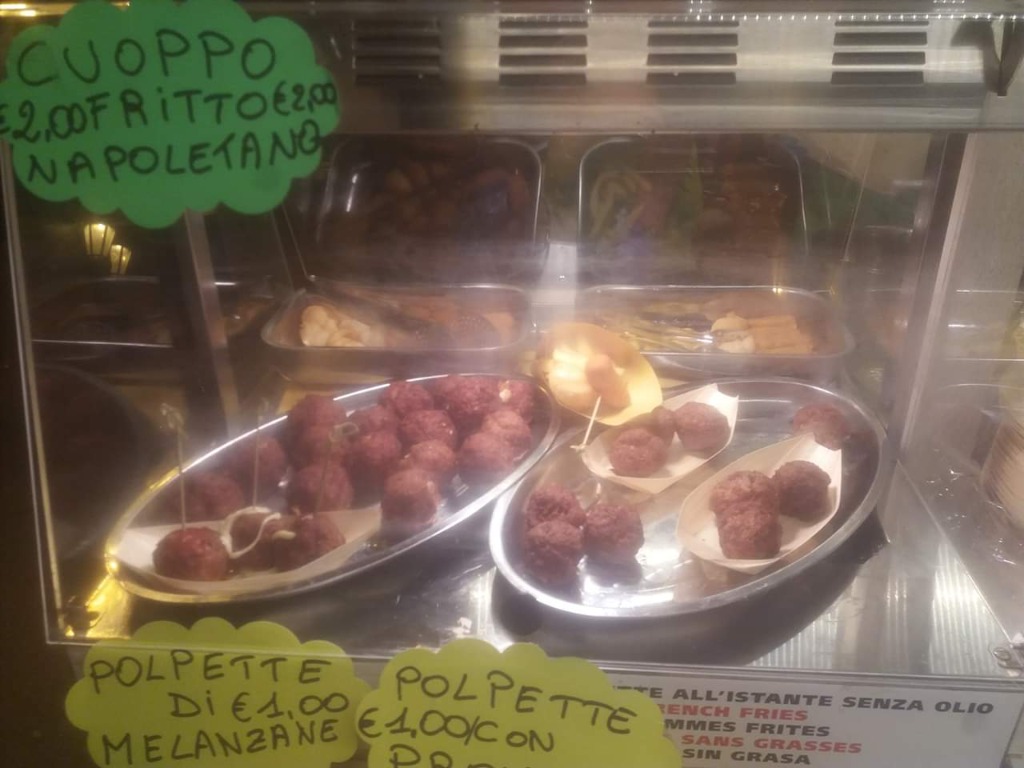 CUOPPO
€2,00 FRITTO €2,00
NAPOLETANO
POLPETTE
DI €1,00
MELANZANE
POLPETTE
€1,00/CON
ALL'ISTANTE SENZA OLIO
RENCH FRIES
MMES FRITES
SANS GRASSES
SIN GRASA